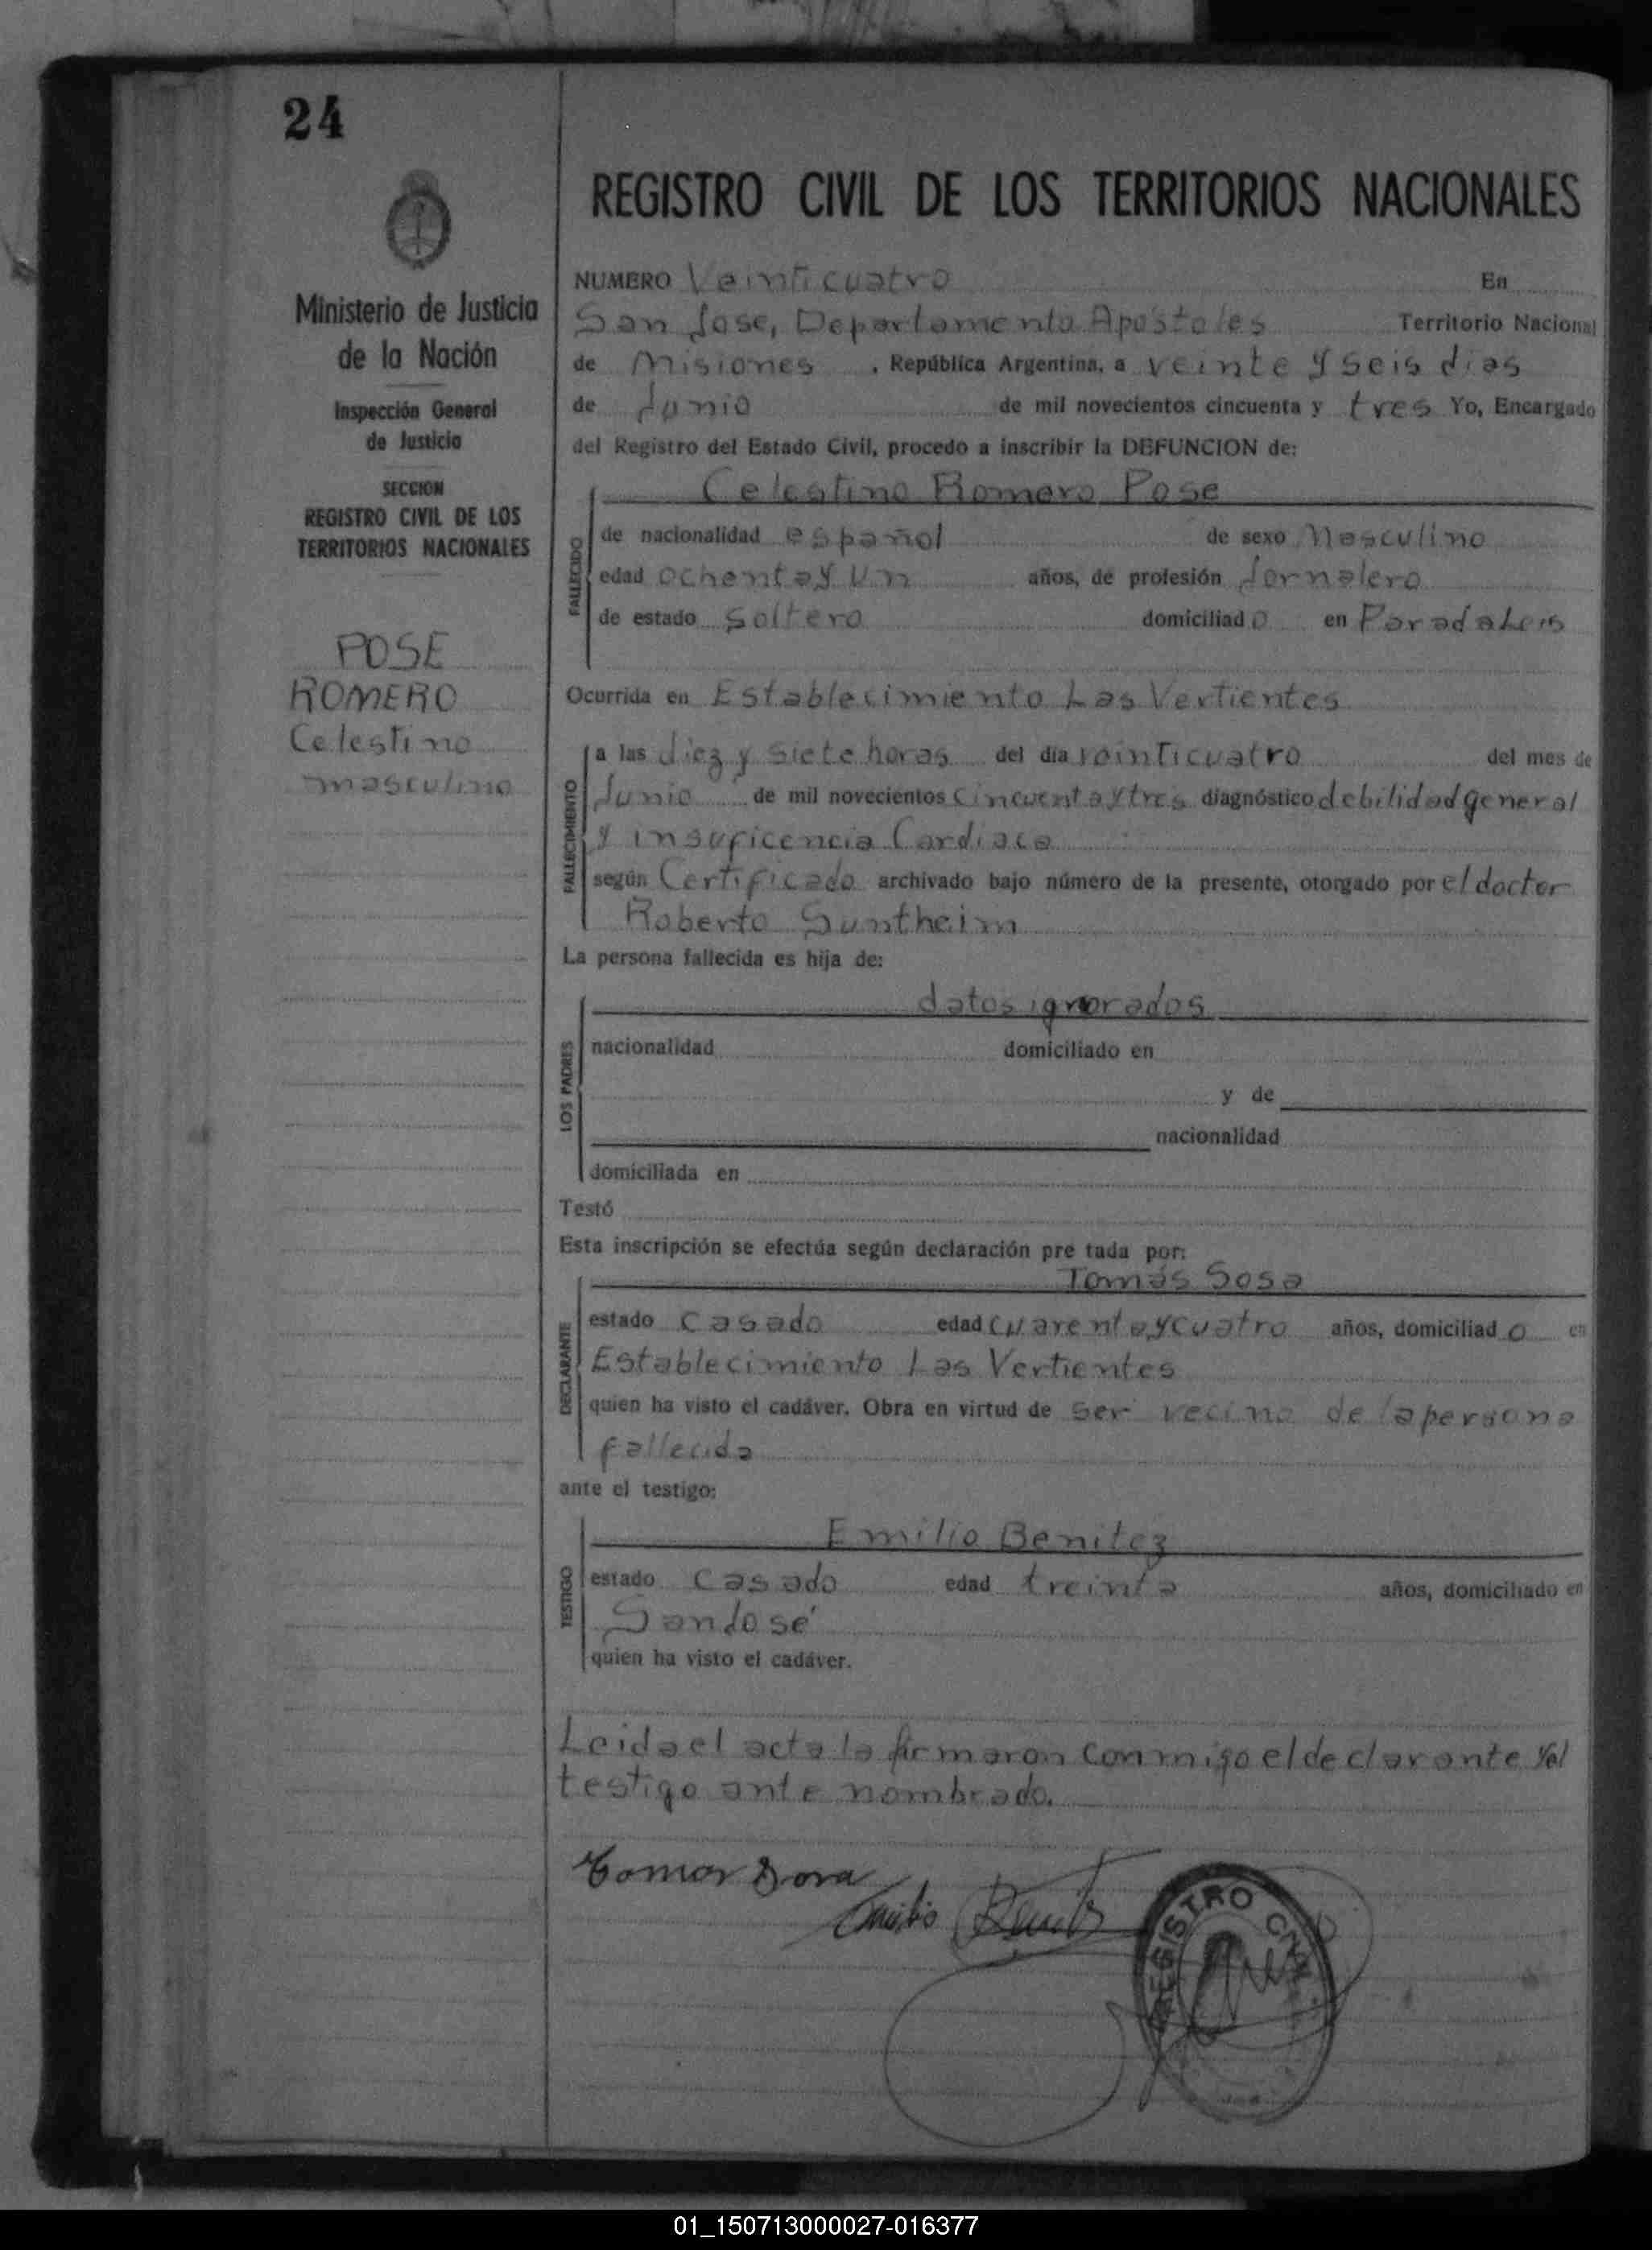 24
REGISTRO CIVIL DE LOS TERRITORIOS NACIONALES
Ministerio de Justicia
de la Nación
Inspección General
de Justicia
SECCION
REGISTRO CIVIL DE LOS
TERRITORIOS NACIONALES
POSE
ROMERO
Celestino
masculino
NUMERO Veinticuatro En
San Jose, Departamento Apostoles Territorio Nacional
de Misiones , República Argentina, a veinte y seis dias
de Junio de mil novecientos cincuenta y tres Yo, Encargado
del Registro del Estado Civil, procedo a inscribir la DEFUNCION de:
Celestino Romero Pose
FALLECIDO
de nacionalidad español de sexo Masculino
edad ochenta y un años, de profesión Jornalero
de estado soltero domiciliado en Parada Leis
Ocurrida en Establecimiento Las Vertientes
FALLECIMIENTO
a las diez y siete horas del día veinticuatro del mes de
Junio de mil novecientos cincuenta y tres diagnóstico debilidad general
y insuficencia Cardiaca
según Certificado archivado bajo número de la presente, otorgado por el doctor
Roberto Suntheim
La persona fallecida es hija de:
datos ignorados
LOS PADRES
nacionalidad domiciliado en
y de
nacionalidad
domiciliada en
Testó
Esta inscripción se efectúa según declaración pre tada por:
Tomás Sosa
DECLARANTE
estado casado edad cuarenta y cuatro años, domiciliado en
Establecimiento Las Vertientes
quien ha visto el cadáver. Obra en virtud de ser vecino de la persona
fallecida
ante el testigo:
Emilio Benitez
TESTIGO
estado casado edad treinta años, domiciliado en
San José
quien ha visto el cadáver.
Leida el acta la firmaron conmigo el declarante y el
testigo ante nombrado.
Tomas Sosa
Emilio Benitez
REGISTRO CIVIL
01_150713000027-016377